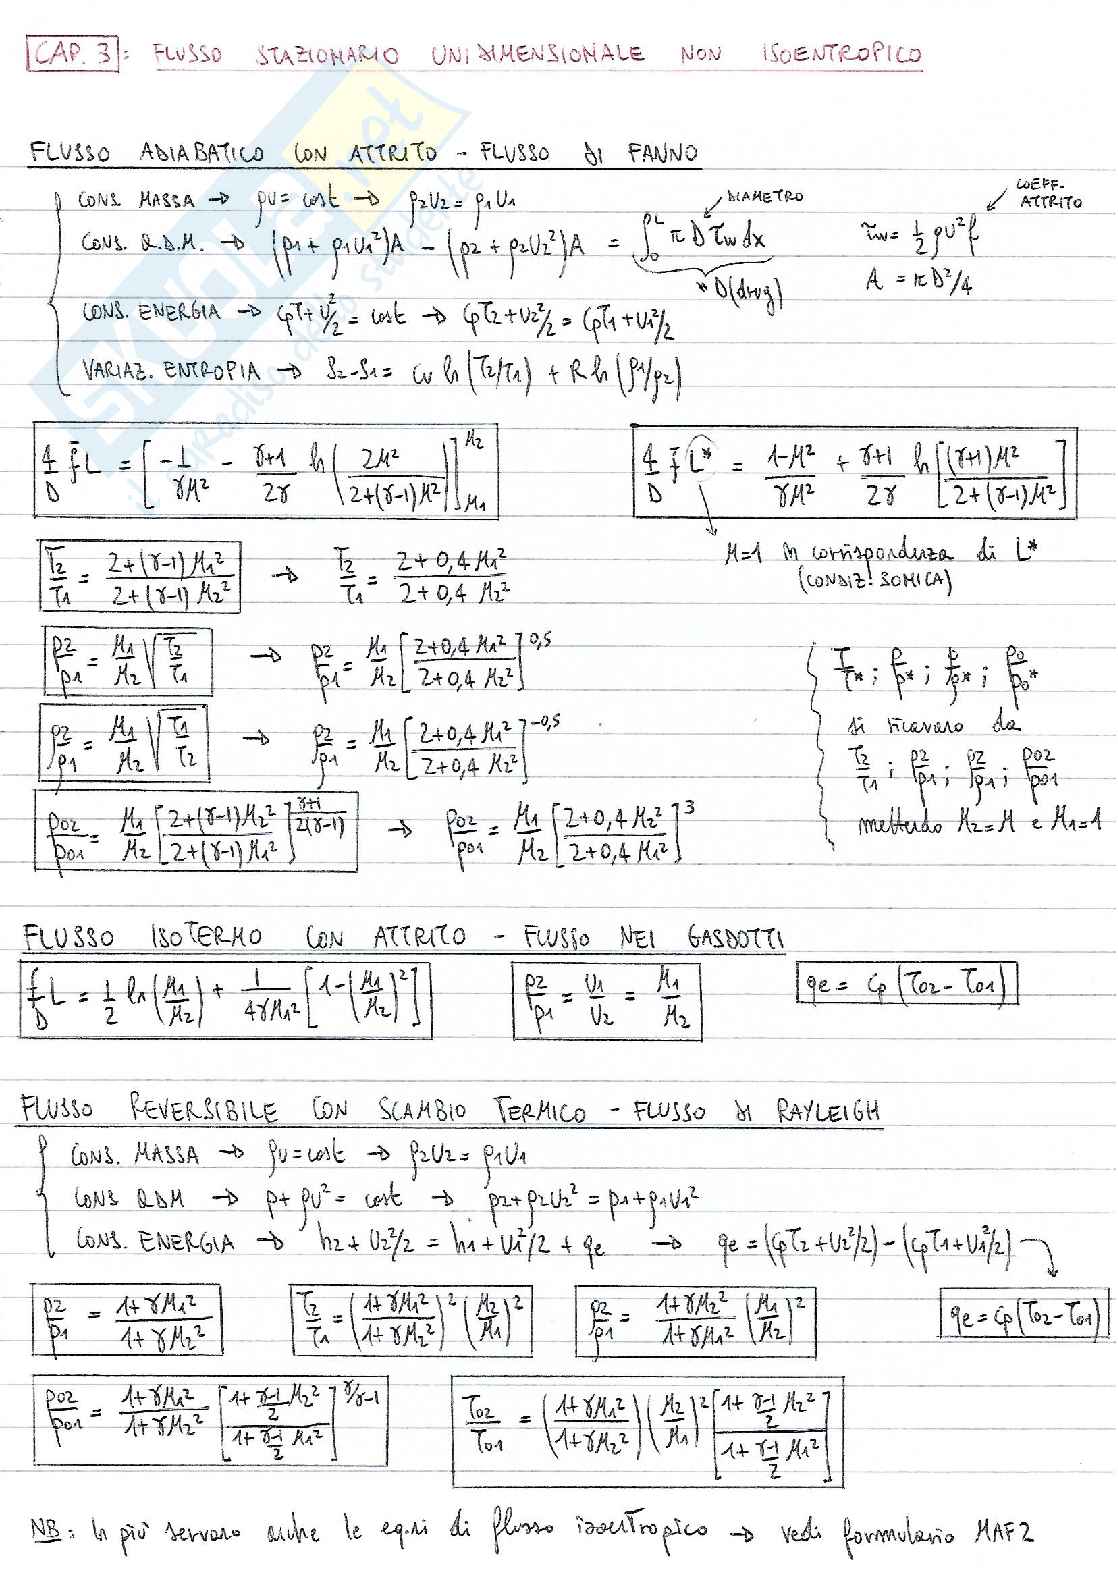 CAP. 3 : FLUSSO STAZIONARIO UNIDIMENSIONALE NON ISOENTROPICO
FLUSSO ADIABATICO CON ATTRITO - FLUSSO DI FANNO
CONS. MASSA → ρv = cost → ρ2v2 = ρ1v1
DIAMETRO
COEFF. ATTRITO
CONS. Q.D.M. → (p1 + ρ1v1²)A - (p2 + ρ2v2²)A = ∫₀ᴸ πD τw dx
τw = 1/2 ρv² f
D(drag)
A = πD²/4
CONS. ENERGIA → cpT + v²/2 = cost → cpT2 + v2²/2 = cpT1 + v1²/2
VARIAZ. ENTROPIA → S2 - S1 = cv ln(T2/T1) + R ln(ρ1/ρ2)
4/D f̄ L = [-1/γM² - γ+1/2γ ln(2M²/2+(γ-1)M²)] M2 M1
4/D f̄ L* = 1-M²/γM² + γ+1/2γ ln[(γ+1)M²/2+(γ-1)M²]
M=1 in corrispondenza di L*
(CONDIZ. SONICA)
T2/T1 = 2+(γ-1)M1²/2+(γ-1)M2² → T2/T1 = 2+0,4M1²/2+0,4M2²
p2/p1 = M1/M2 √T2/T1 → p2/p1 = M1/M2 [2+0,4M1²/2+0,4M2²]^0,5
ρ2/ρ1 = M1/M2 √T1/T2 → ρ2/ρ1 = M1/M2 [2+0,4M1²/2+0,4M2²]^-0,5
p02/p01 = M1/M2 [2+(γ-1)M2²/2+(γ-1)M1²]^γ+1/2(γ-1) → p02/p01 = M1/M2 [2+0,4M2²/2+0,4M1²]^3
T/T* ; p/p* ; ρ/ρ* ; p0/p0*
si ricavano da
T2/T1 ; p2/p1 ; ρ2/ρ1 ; p02/p01
mettendo M2=M e M1=1
FLUSSO ISOTERMO CON ATTRITO - FLUSSO NEI GASDOTTI
f/D L = 1/2 ln(M1/M2) + 1/4γM1² [1-(M1/M2)²]
p2/p1 = v1/v2 = M1/M2
qe = cp(T02 - T01)
FLUSSO REVERSIBILE CON SCAMBIO TERMICO - FLUSSO DI RAYLEIGH
CONS. MASSA → ρv = cost → ρ2v2 = ρ1v1
CONS QDM → p + ρv² = cost → p2 + ρ2v2² = p1 + ρ1v1²
CONS. ENERGIA → h2 + v2²/2 = h1 + v1²/2 + qe → qe = (cpT2 + v2²/2) - (cpT1 + v1²/2)
p2/p1 = 1+γM1²/1+γM2²
T2/T1 = (1+γM1²/1+γM2²)² (M2/M1)²
ρ2/ρ1 = 1+γM2²/1+γM1² (M1/M2)²
qe = cp(T02 - T01)
p02/p01 = 1+γM1²/1+γM2² [1+γ-1/2 M2²/1+γ-1/2 M1²]^γ/γ-1
T02/T01 = (1+γM1²/1+γM2²) (M2/M1)² [1+γ-1/2 M2²/1+γ-1/2 M1²]
NB: In più servono anche le eq.ni di flusso isoentropico → vedi formulario MAF2
SKUOLA.net
il paradiso dello studente